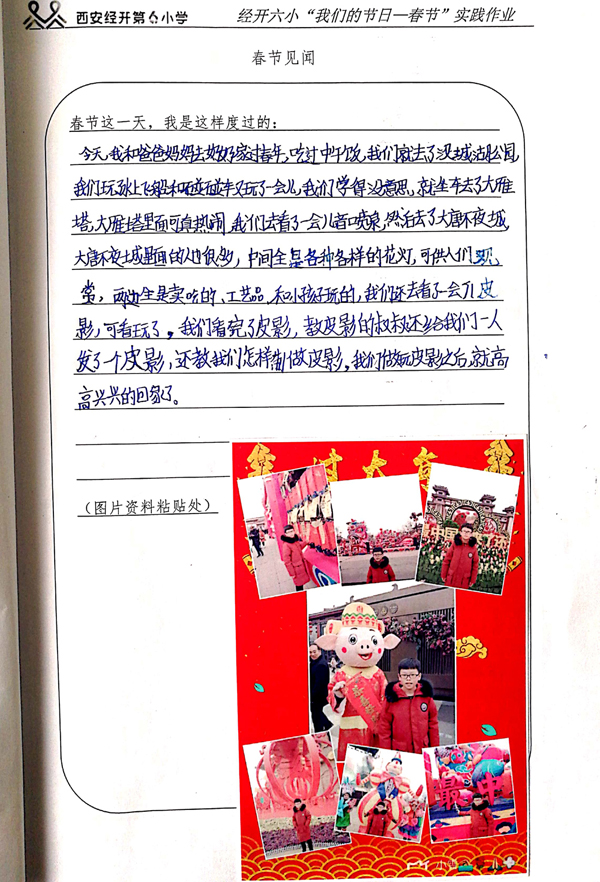 西安经开第六小学 经开六小“我们的节日—春节”实践作业
春节见闻
春节这一天，我是这样度过的：
今天，我和爸爸妈妈去奶奶家过春年，吃过中午饭，我们就去了汉城湖公园，
我们玩水上飞船和碰碰车又玩了一会儿，我们学得没意思，就坐车去了大雁
塔，大雁塔里面可真热闹，我们去看了一会儿音喷泉，然后去了大唐不夜城，
大唐不夜城里面的人也很多，中间全是各种各样的花灯，可供人们观
赏，两边全是卖吃的、工艺品，和小孩子玩的，我们还去看了一会儿皮
影，可好玩了，我们看完了皮影，教皮影的叔叔还给我们一人
发了一个皮影，还教我们怎样制做皮影，我们做玩皮影之后，就高
高兴兴的回家了。
（图片资料粘贴处）
过大年
中国
最中